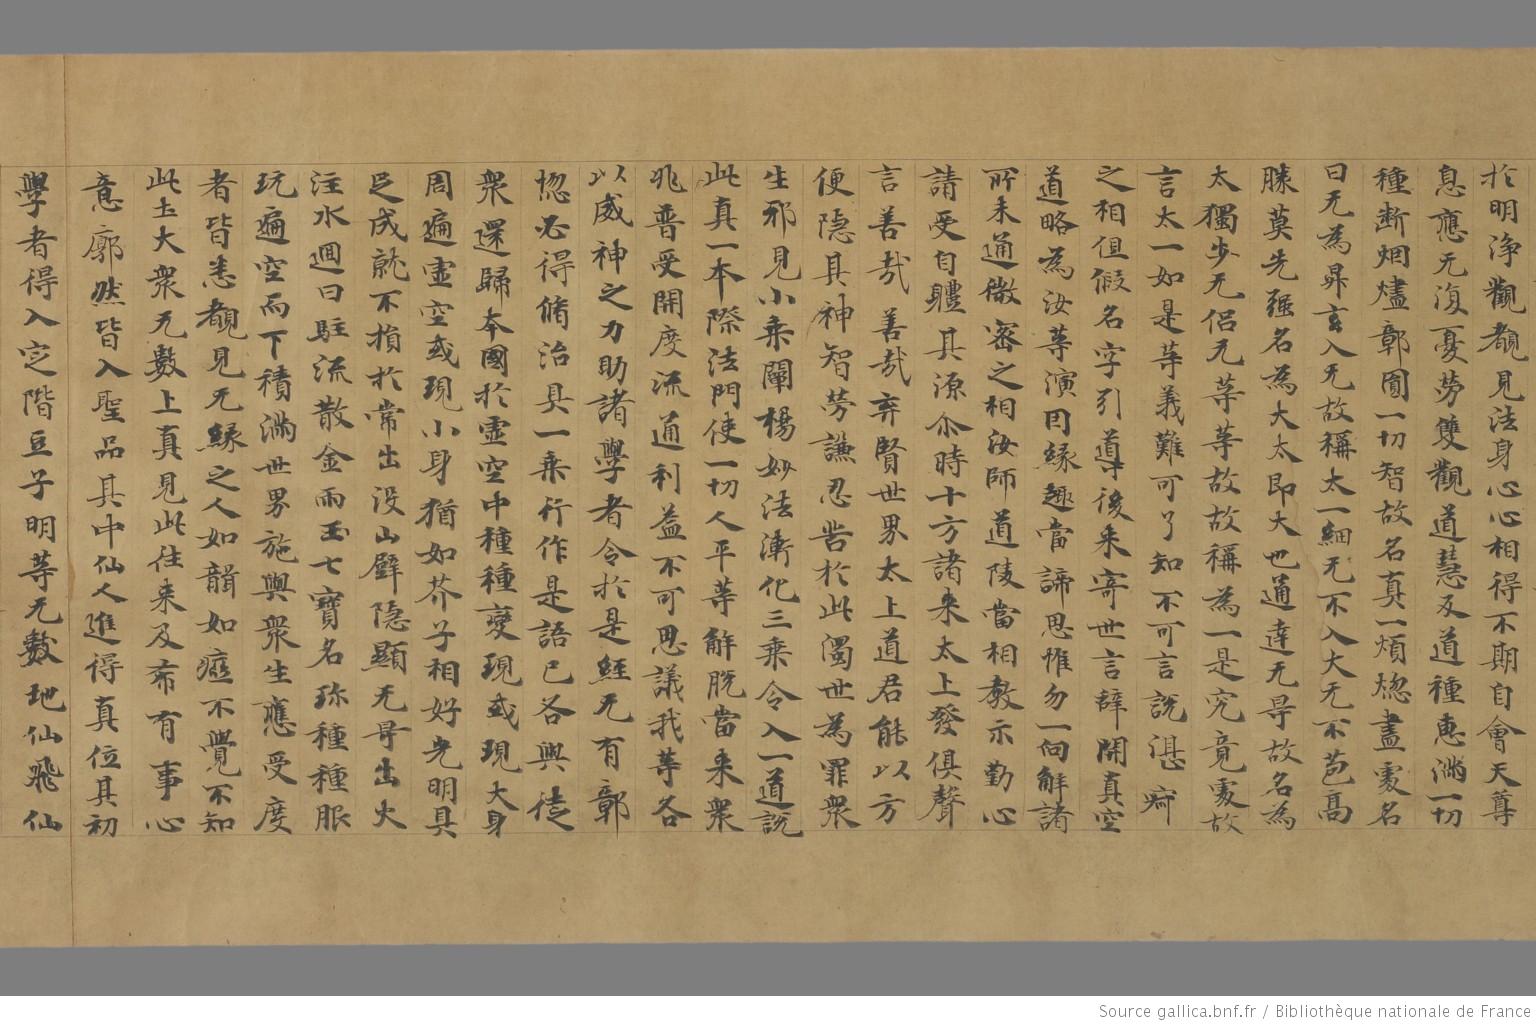 於明淨觀覩見法身心心相得不期自會天尊
息應无復憂勞雙觀道慧及道種惠滿一切
種断烟燼鄣圊一切智故名真一煩惚盡處名
曰无為昇玄入无故稱太一細无不入大无不苞高
勝莫先强名為大太即大也通達无㝵故名為
太獨步无侣无等等故故稱為一是究竟處故
言太一如是等義難可了知不可言說湛寂
之相但假名字引導後来寄世言辭開真空
道略為汝等演因緣趣當諦思惟勿一向解諸
所未通微密之相汝師道陵當相教示勤心
請受自軆其源尒時十方諸来太上發俱聲
言善哉善哉弃賢世界太上道君能以方
便隱其神智勞謙忍苦於此濁世為罪衆
生邪見小乘闡楊妙法漸化三乘令入一道說
此真一本際法門使一切人平等解脫當来衆
兆普受開度流通利益不可思議我等各
以威神之力助諸學者令於是經无有鄣
惚必得脩治具一乘行作是語已各與徒
衆還歸本國於虛空中種種變現或現大身
周遍虛空或現小身猶如芥子相好光明具
足成就不損於常出没山壁隱顯无㝵出火
注水迴日駐流散金雨玉七寶名珎種種服
玩遍空而下積滿世界施與衆生應受度
者皆悉覩見无緣之人如聾如癡不覺不知
此土大衆无數上真見此往来及希有事心
意廓然皆入聖品其中仙人進得真位其初
學者得入定階豆子明等无數地仙飛仙
Source gallica.bnf.fr / Bibliothèque nationale de France